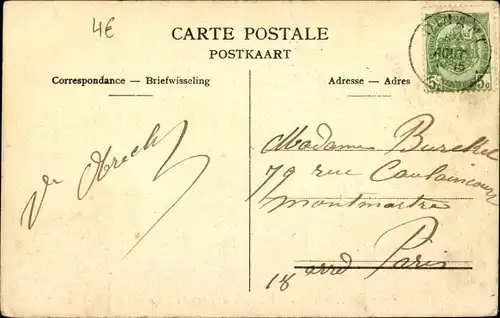 4€
CARTE POSTALE
POSTKAART
Correspondance — Briefwisseling
Adresse — Adres
AOUT
5c 5c
Madame
79 rue Caulaincourt
Montmartre
18 arrd Paris